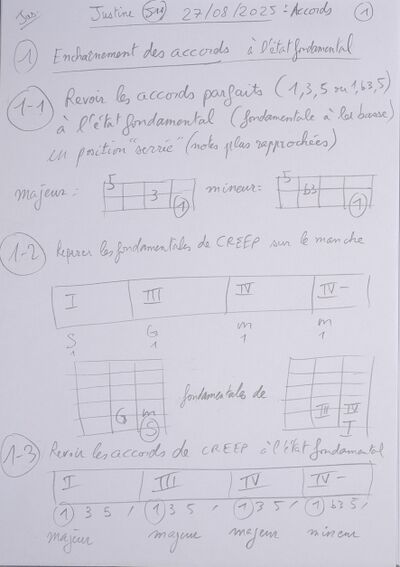 Justine 27/08/2025 : Accords 1
1 Enchaînement des accords à l'état fondamental
1-1 Revoir les accords parfaits (1,3,5 ou 1,b3,5)
à l'état fondamental (fondamentale à la basse)
en position "serrée" (notes plus rapprochées)
majeur : 5 3 1 mineur : 5 b3 1
1-2 Repérer les fondamentales de CREEP sur le manche
I III IV IV-
S G m m
1 1 1 1
G m S fondamentales de III IV I
1-3 Revoir les accords de CREEP à l'état fondamental
I III IV IV-
1 3 5 , 1 3 5 , 1 3 5 , 1 b3 5 ,
majeur majeur majeur mineur